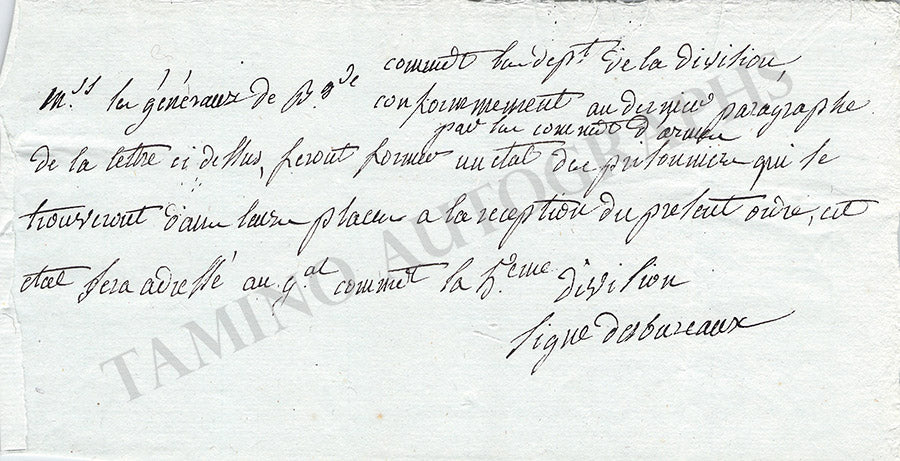 commdt les dept de la division
mrs les généraux de B.gde conformement au dernier paragraphe
par les commdt d'armes
de la lettre ci dessus, feront former un état des prisonniers qui se
trouveront dans leurs places a la reception du present ordre, cet
etat sera adressé au g.al commdt la 5.eme division
signé desbureaux
TAMINO AUTOGRAPHS